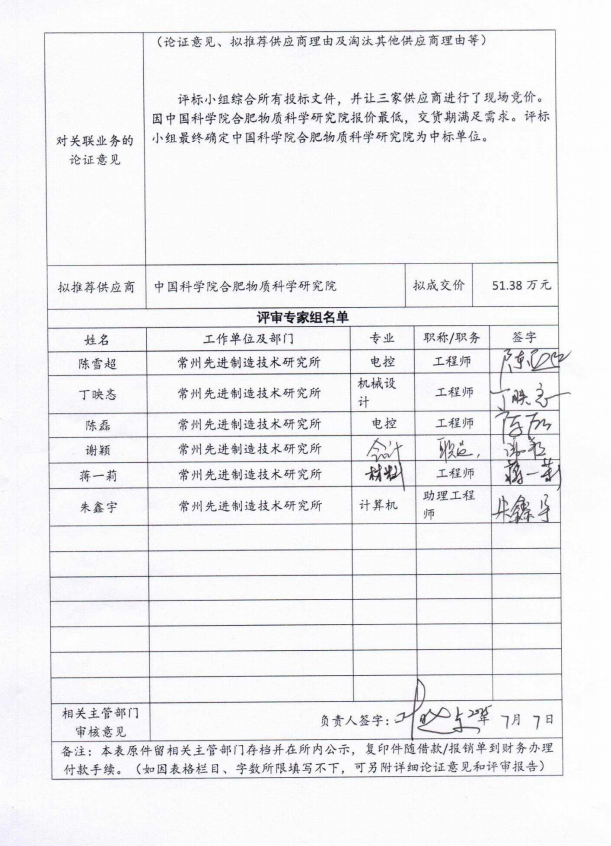 (论证意见、拟推荐供应商理由及淘汰其他供应商理由等)
评标小组综合所有投标文件，并让三家供应商进行了现场竞价。
因中国科学院合肥物质科学研究院报价最低，交货期满足需求。评标
小组最终确定中国科学院合肥物质科学研究院为中标单位。
对关联业务的
论证意见
拟推荐供应商 中国科学院合肥物质科学研究院 拟成交价 51.38 万元
评审专家组名单
姓名 工作单位及部门 专业 职称/职务 签字
陈雪超 常州先进制造技术研究所 电控 工程师
丁映忞 常州先进制造技术研究所 机械设
计 工程师
陈磊 常州先进制造技术研究所 电控 工程师 陈磊
谢颖 常州先进制造技术研究所 会计 职员, 谢颖
蒋一莉 常州先进制造技术研究所 材料 工程师 蒋一莉
朱鑫宇 常州先进制造技术研究所 计算机 助理工程
师 朱鑫宇
相关主管部门
审核意见
负责人签字： 2025年 7月 7日
备注：本表原件留相关主管部门存档并在所内公示，复印件随借款/报销单到财务办理
付款手续。（如因表格栏目、字数所限填写不下，可另附详细论证意见和评审报告）